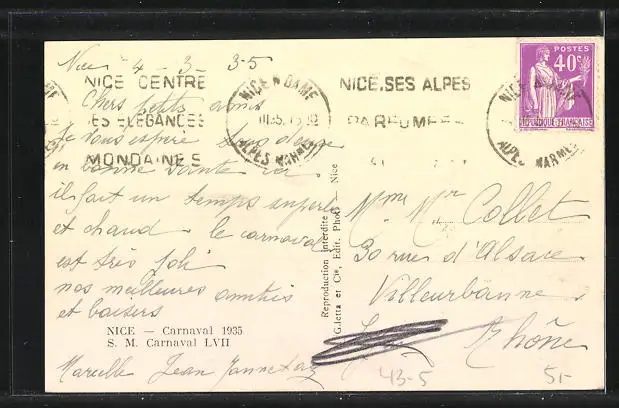 Nice 4 - 3 - 35
NICE CENTRE
DES ELEGANCES
MONDAINES
NICE R. DAME
III 35
ALPES MARMES
NICE, SES ALPES
PARFUMEES
POSTES
40c
REPUBLIQUE FRANÇAISE
Chers petits amis
Je vous espère tous deux
en bonne santé ici
il fait un temps superbe
et chaud. le carnaval
est très joli
nos meilleures amitiés
et baisers
NICE — Carnaval 1935
S. M. Carnaval LVII
Marcelle Jean
Reproduction interdite
Giletta et Cie, Édit. Phot. — Nice
Mme Mr Collet
30 rue d'Alsace
Villeurbanne
Rhône
43-5
5,-